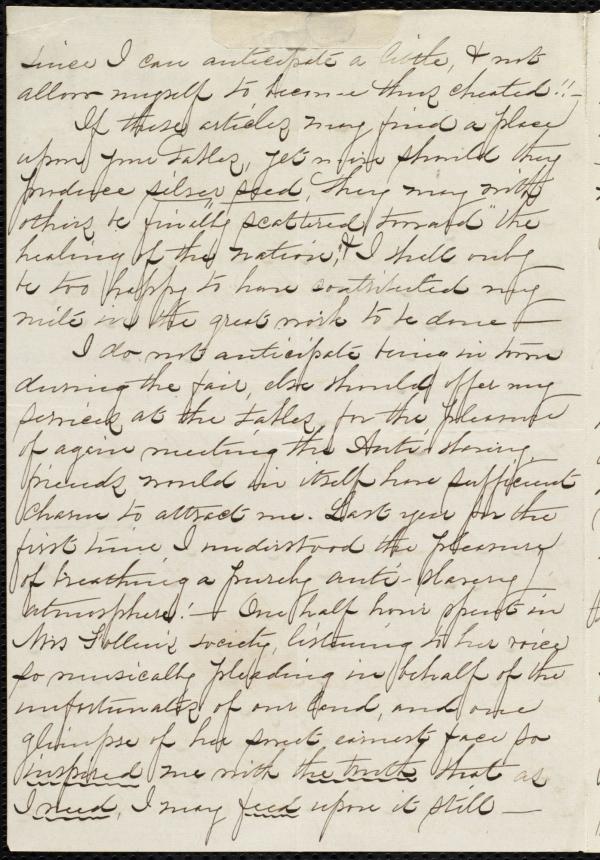 since I can anticipate a little, & not
allow myself to become thus cheated!!–
If these articles may find a place
upon your tables, yet more should they
produce silver seed, they may with
others be finally scattered toward "the
healing of the nation," & I shall only
be too happy to have contributed my
mite in the great work to be done –
I do not anticipate being in town
during the fair, else should offer my
services at the tables, for the pleasure
of again meeting the Anti-slavery
friends would in itself have sufficient
charm to attract me. Last year for the
first time I understood the pleasure
of breathing a purely anti-slavery
atmosphere! – One half hour spent in
Mrs Follen's society, listening to her voice
so musically pleading in behalf of the
unfortunates of our land, and one
glimpse of her sweet earnest face so
inspired me with the truth that as
I need, I may feed upon it still –